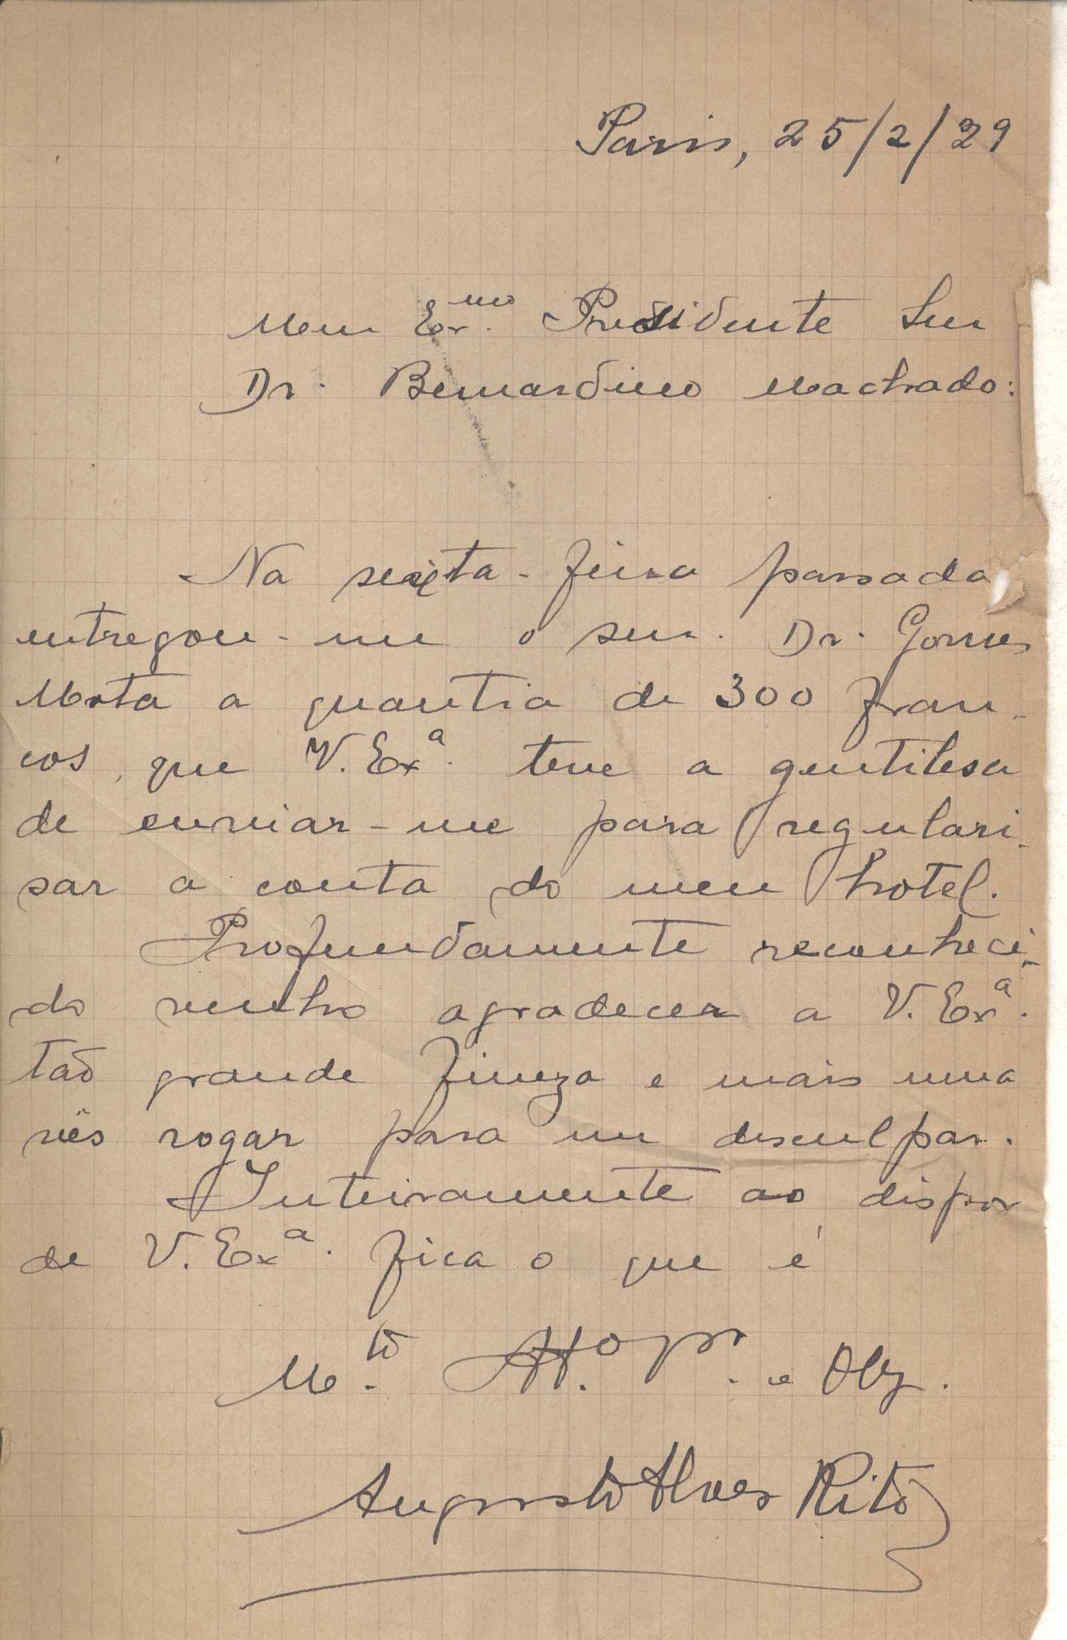 Paris, 25/2/29
Meu Ex.mo Presidente Snr
Dr. Bernardino Machado:
Na sexta-feira passada
entregou-me o snr. Dr. Gomes
Mota a quantia de 300 fran-
cos, que V. Exª. teve a gentilesa
de enviar-me para regulari-
sar a conta do meu hotel.
Profundamente reconheci-
do venho agradecer a V. Exª.
tão grande fineza e mais uma
vês rogar para me desculpar.
Inteiramente ao dispor
de V. Exª. fica o que é
M.to Att.o e Obg.
Augusto Alves Rito